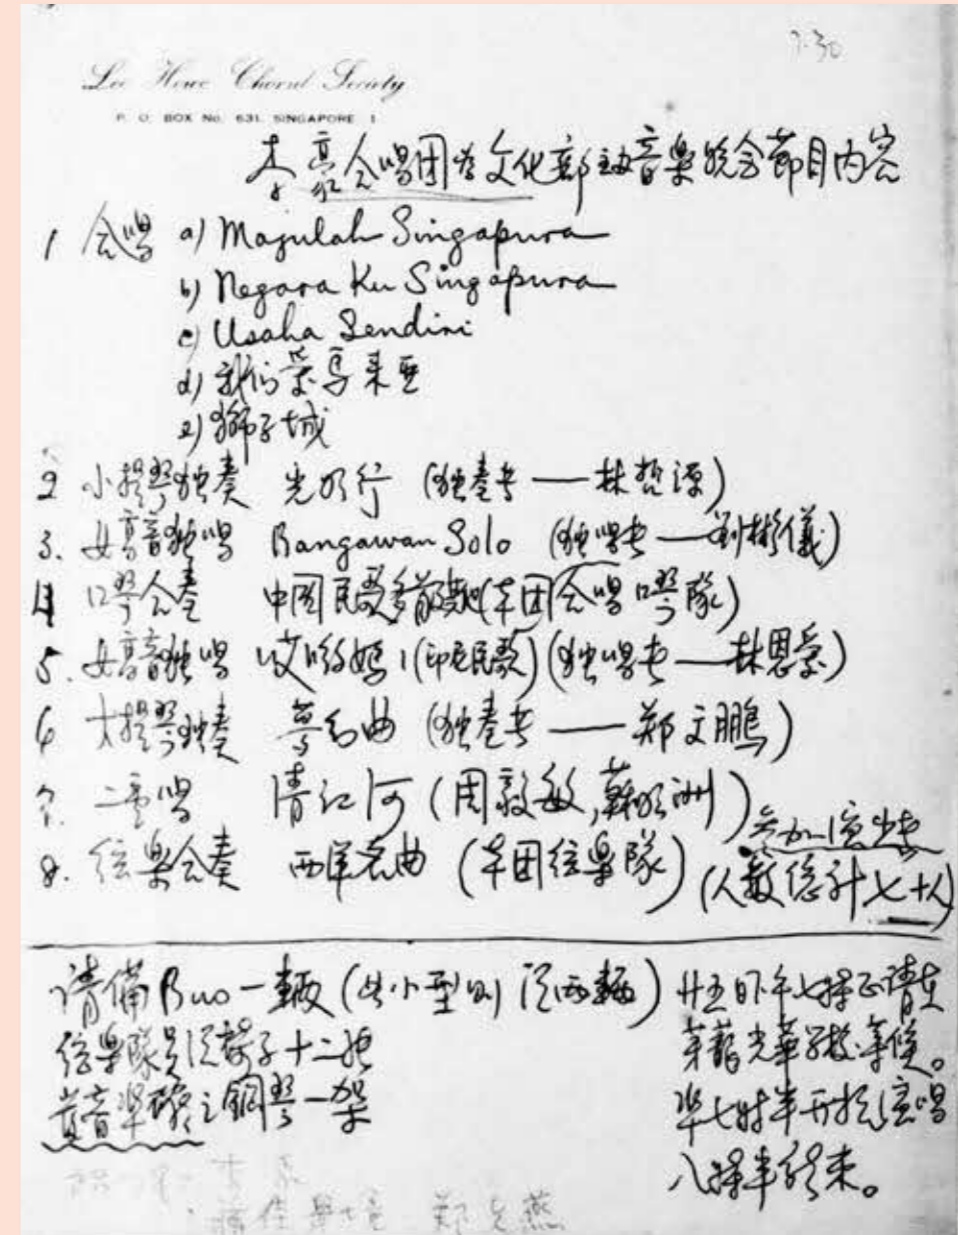 7-30
Lee Howe Choral Society
P. O. BOX No. 631, SINGAPORE 1
李豪合唱团为文化部主办音樂晚会節目内容
1 合唱 a) Majulah Singapura
b) Negara Ku Singapura
c) Usaha Sendiri
d) 我们是馬来亚
e) 獅子城
2 小提琴独奏 光明行 (独奏者——林哲源)
3. 女高音独唱 Bangawan Solo (独唱者——劉彬儀)
4 口琴合奏 中國民歌 (本团合唱口琴隊)
5. 女高音独唱 哎哟媽! (印尼民歌) (独唱者——林恩)
6 大提琴独奏 夢幻曲 (独奏者——郑文鵬)
7. 二重唱 清江河 (周毅敏, 蘇明洲)
8. 弦樂合奏 西洋名曲 (本团弦樂隊)
参加演出者
(人数總計七十人)
請備Bus一輛 (如小型则須两輛)
弦樂隊員須椅子十二張
音準確之鋼琴一架
廿五日下午七時正請在
芽蘢光華学校等候。
準七時半开始演唱
八時半結束。